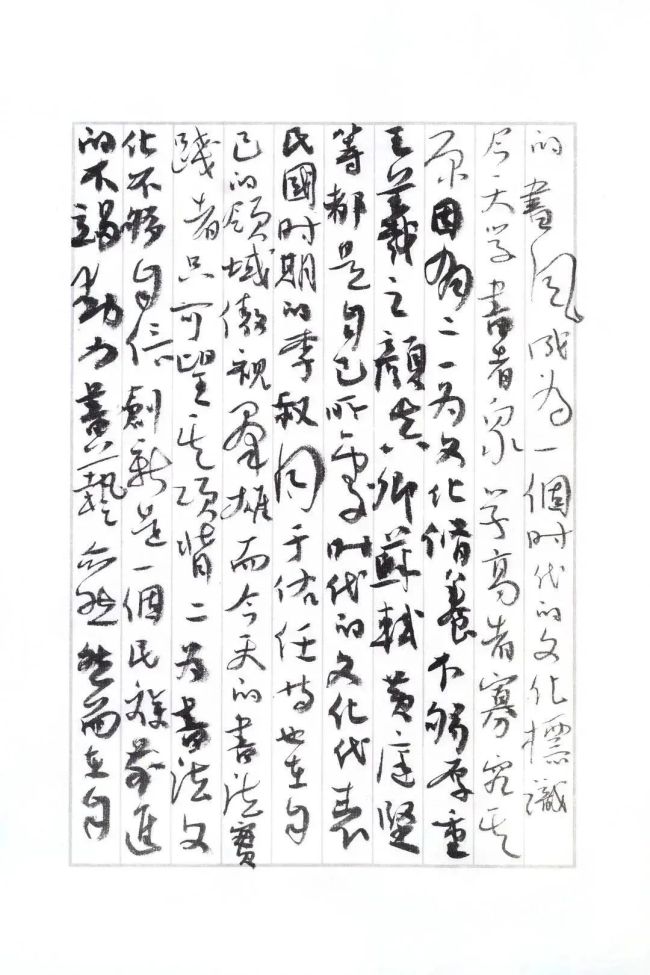 的書風成为一個时代的文化標識
今天学書者众学高者寡究其
原因有二一为文化脩養不够厚重
王羲之顔真卿蘇軾黄庭堅
等都是自己所處时代的文化代表
民國时期的李叔同于佑任等也在自
己的領域傲視羣雄而今天的書法實
踐者只可望其項背二为書法文
化不够自信創新是一個民族前進
的不竭動力書藝亦然然而在自